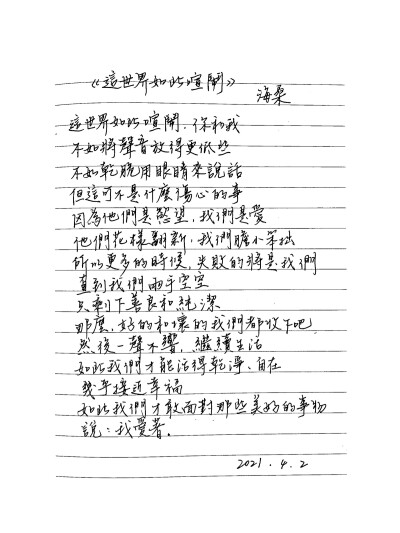 《這世界如此喧鬧》
海桑
這世界如此喧鬧，你和我
不如將聲音放得更低些
不如乾脆用眼睛來說話
但這可不是什麼傷心的事
因為他們是慾望，我們是愛
他們花樣翻新，我們膽小笨拙
所以更多的時候，失敗的將是我們
直到我們兩手空空
只剩下善良和純潔
那麼，好的和壞的我們都收下吧
然後一聲不響，繼續生活
如此我們才能活得乾淨、自在
幾乎接近幸福
如此我們才敢面對那些美好的事物
說：我愛著。
2021.4.2